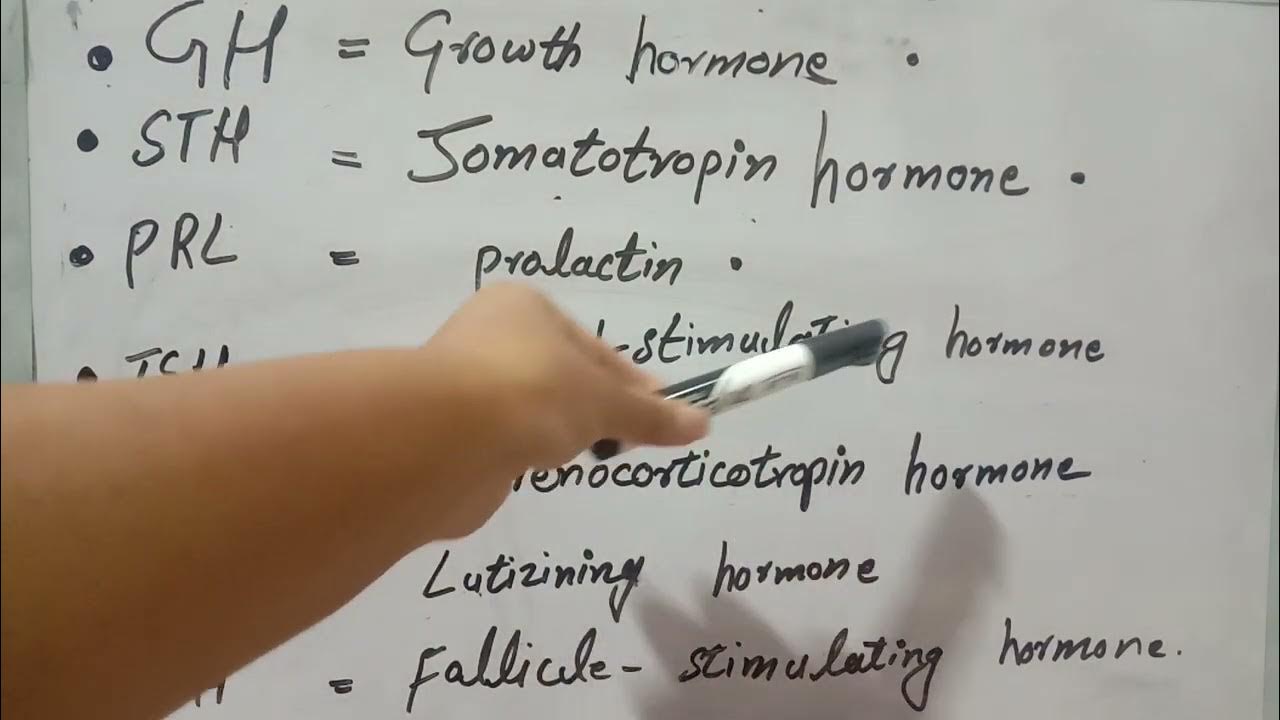 • GH = Growth hormone .
• STH = Somatotropin hormone .
• PRL = pralactin .
• TSH -stimulating hormone
enocorticotropin hormone
Lutizining hormone
H = Fallicule- stimulating hormone.